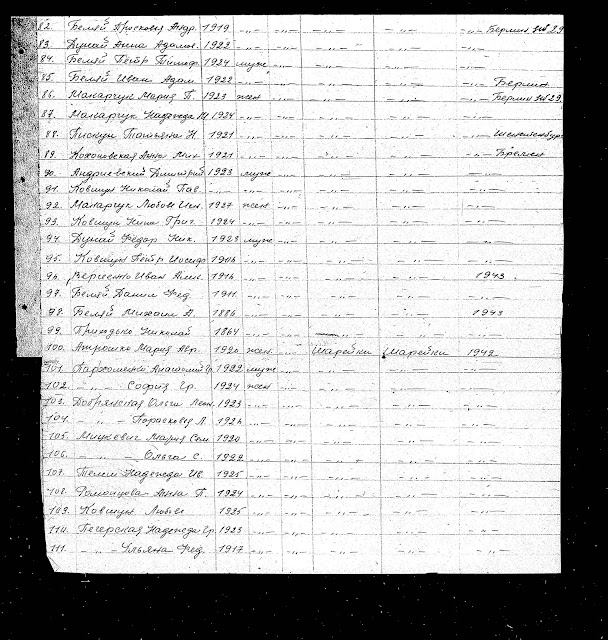 82. Белей Прасковья Андр. 1919 -"- -"- -"- -"- -"- Берлин NW 29
83. Дунай Анна Адамов. 1922 -"- -"- -"- -"- -"-
84. Белей Пётр Тимоф. 1924 муж -"- -"- -"- -"-
85. Белей Иван Адам. 1922 -"- -"- -"- -"- -"- Берлин
86. Макарчук Мария П. 1923 жен -"- -"- -"- -"- Берлин NW 29
87. Макарчук Надежда 1924 -"- -"- -"- -"- -"-
88. Пискун Татьяна Н. 1921 -"- -"- -"- -"-
89. Анна Мих. 1921 -"- -"- -"- -"- -"- Бремен
90. Андриевский Дмитрий 1923 муж -"- -"- -"- -"-
91. Ковшун Николай Пав. -"- -"- -"- -"- -"-
92. Макарчук Любовь 1927 жен -"- -"- -"- -"-
93. Ковшун Нина Григ. 1924 -"- -"- -"- -"- -"-
94. Дунай Фёдор Ник. 1923 муж -"- -"- -"- -"-
95. Ковшун Пётр Иосиф 1906 -"- -"- -"- -"- -"-
96. Иван 1916 -"- -"- -"- -"- 1943
97. Белей Данил Фед 1911 -"- -"- -"- -"- -"-
98. Белей Михаил А. 1886 -"- -"- -"- -"- 1943
99. Приходько Николай 1864 -"- -"- -"- -"- -"-
100. Мария Авр. 1920 жен -"- Шарейки Шарейки 1942
101. Пархоменко Анатолий Гр. 1922 муж -"- -"- -"- -"-
102. -"- София Гр. 1924 жен -"- -"- -"- -"-
103. Добрянская Ольга Леон. 1923 -"- -"- -"- -"- -"-
104. -"- Порасковья Л. 1926 -"- -"- -"- -"- -"-
105. Мицкевич Мария Сем. 1920 -"- -"- -"- -"- -"-
106. -"- Ольга С. 1922 -"- -"- -"- -"- -"-
107. Надежда Ив. 1925 -"- -"- -"- -"- -"-
108. Анна П. 1924 -"- -"- -"- -"- -"-
109. Ковшун Любовь 1925 -"- -"- -"- -"- -"-
110. Печерская Надежда Гр. 1923 -"- -"- -"- -"- -"-
111. -"- Ульяна Фед. 1917 -"- -"- -"- -"- -"-